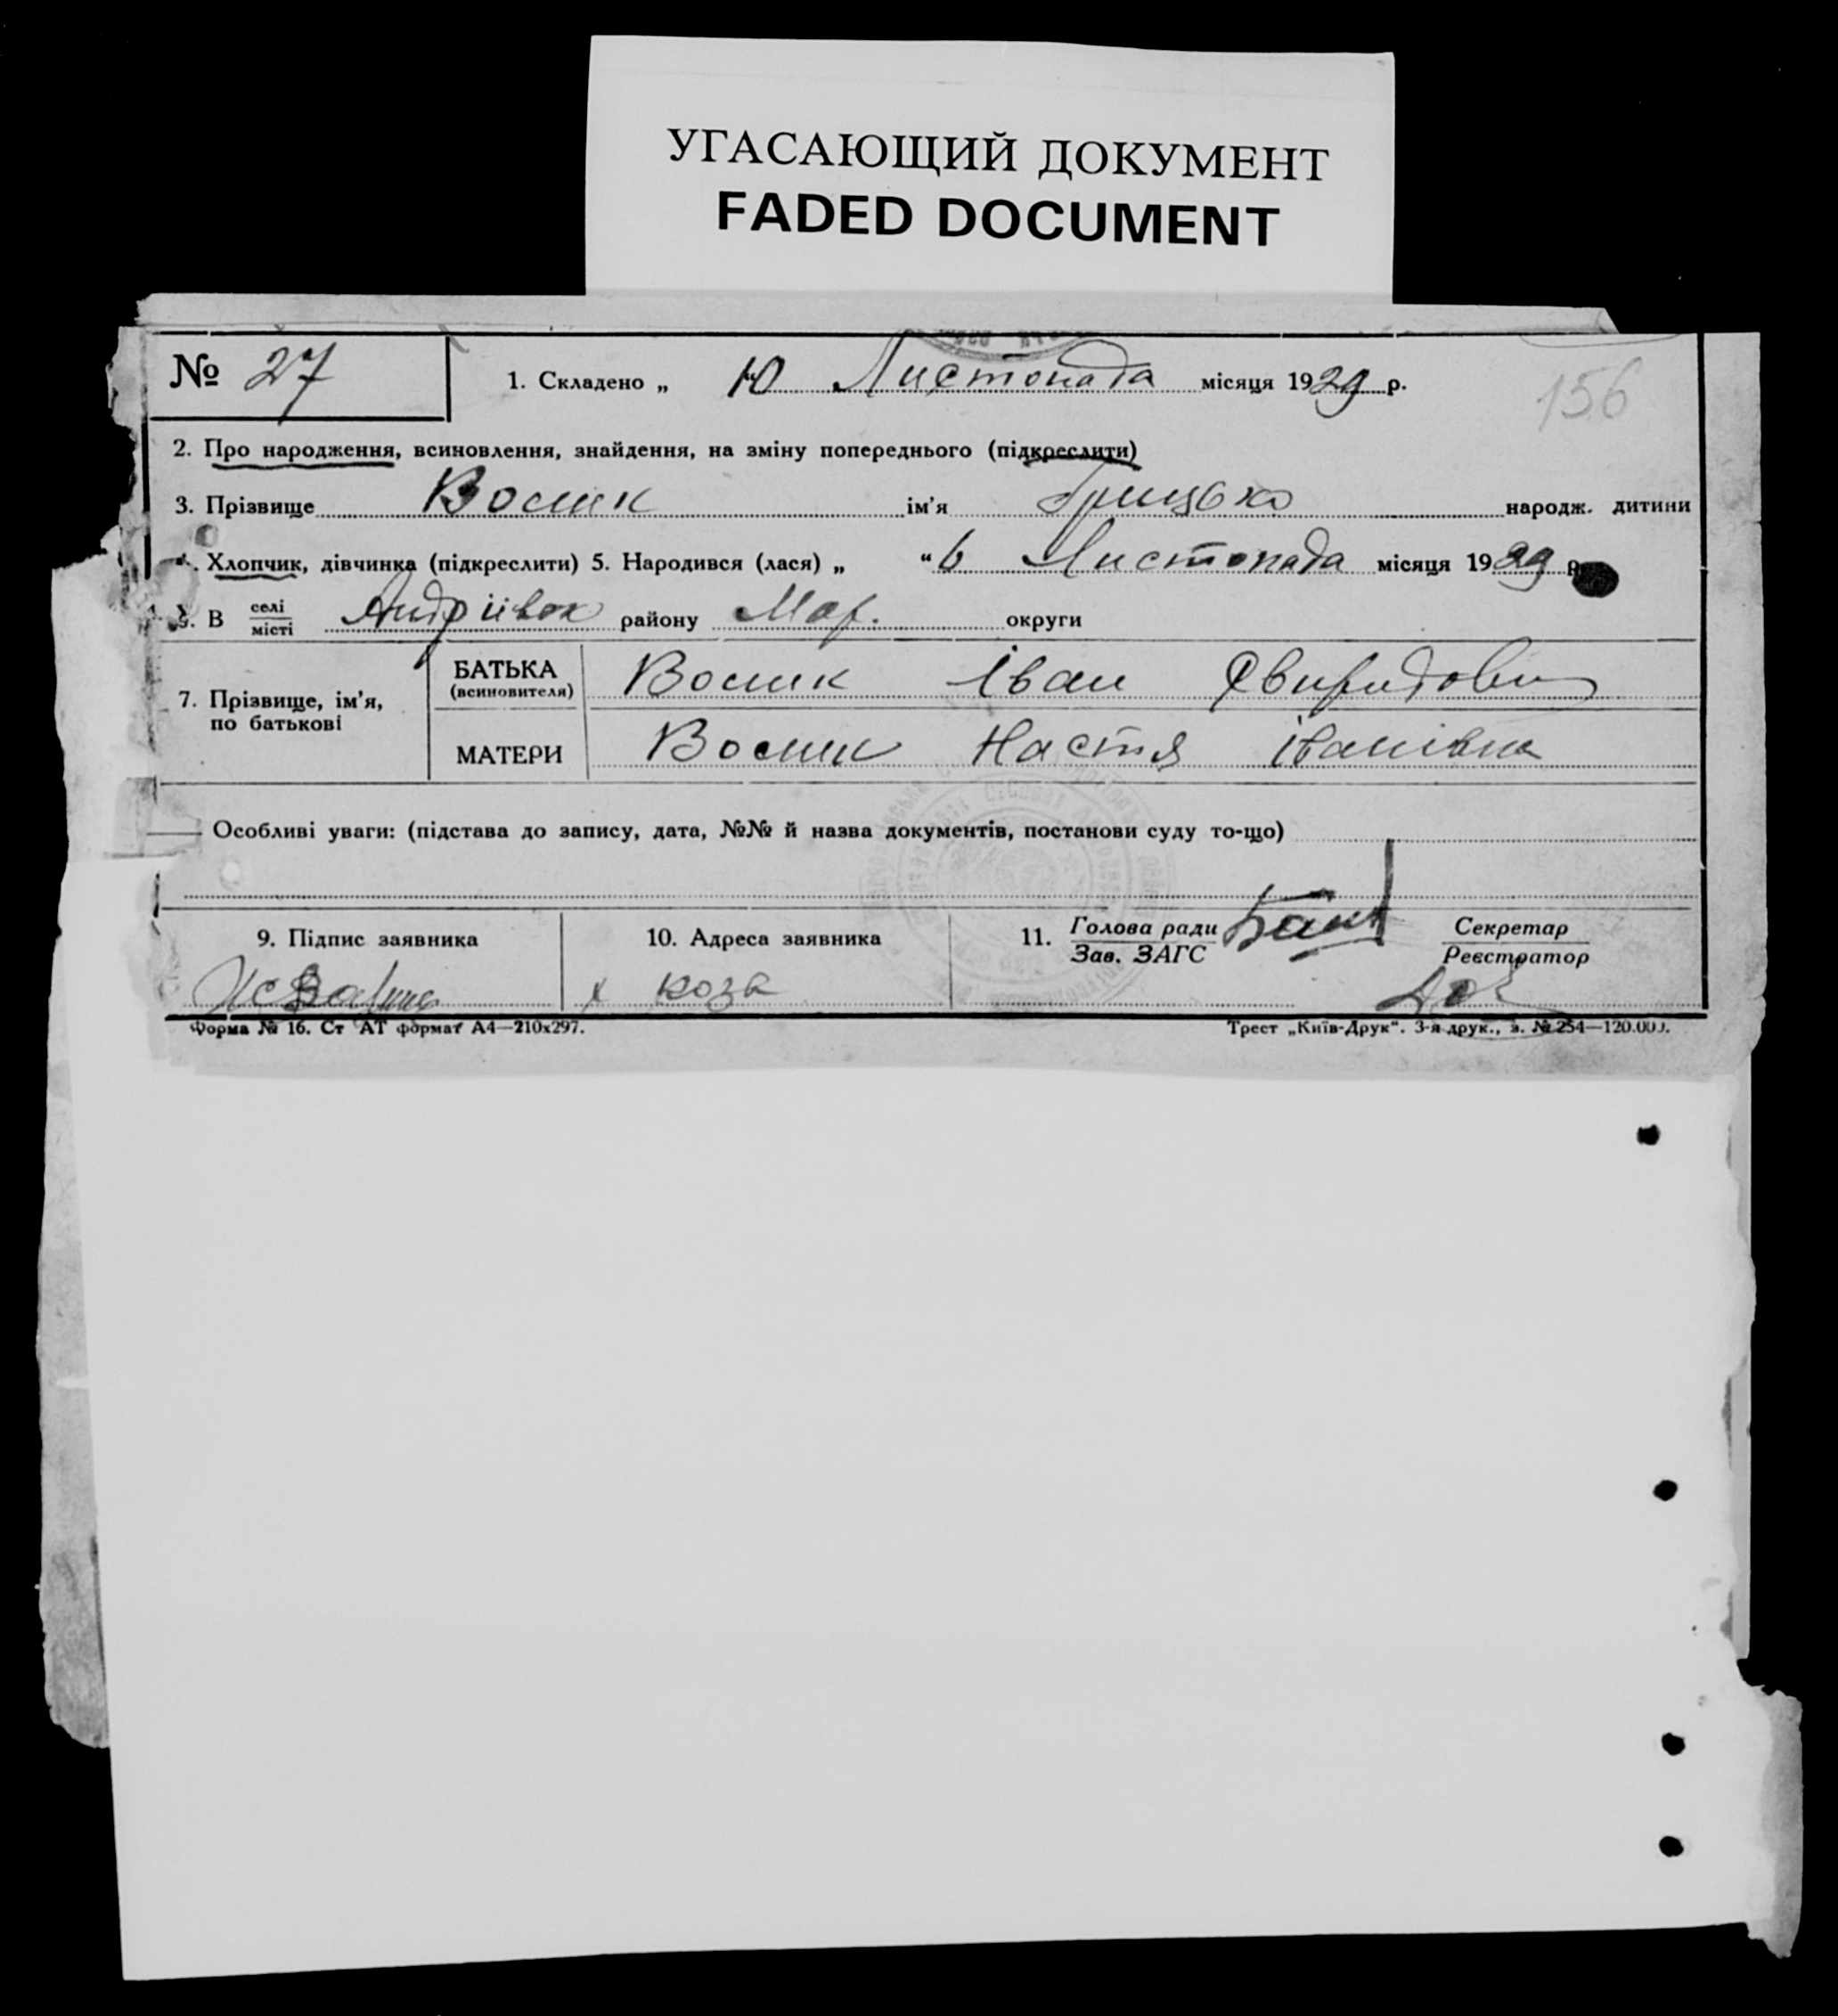 УГАСАЮЩИЙ ДОКУМЕНТ
FADED DOCUMENT
№ 27
1. Складено „ 10 Листопада місяця 1929 р.
156
2. Про народження, всиновлення, знайдення, на зміну попереднього (підкреслити)
3. Прізвище Волик ім'я Грицько народж. дитини
4. Хлопчик, дівчинка (підкреслити) 5. Народився (лася) „ “ 6 Листопада місяця 1929 р.
В селі/місті Андріївка району Мар. округи
7. Прізвище, ім'я, по батькові
БАТЬКА (всиновителя) Волик Іван Свиридович
МАТЕРИ Волик Настя Іванівна
Особливі уваги: (підстава до запису, дата, №№ й назва документів, постанови суду то-що)
9. Підпис заявника
10. Адреса заявника
11. Голова ради
Зав. ЗАГС
Секретар
Реєстратор
Форма № 16. Ст АТ формат А4—210x297.
Трест „Київ-Друк“. 3-я друк., з. № 254—120.000.